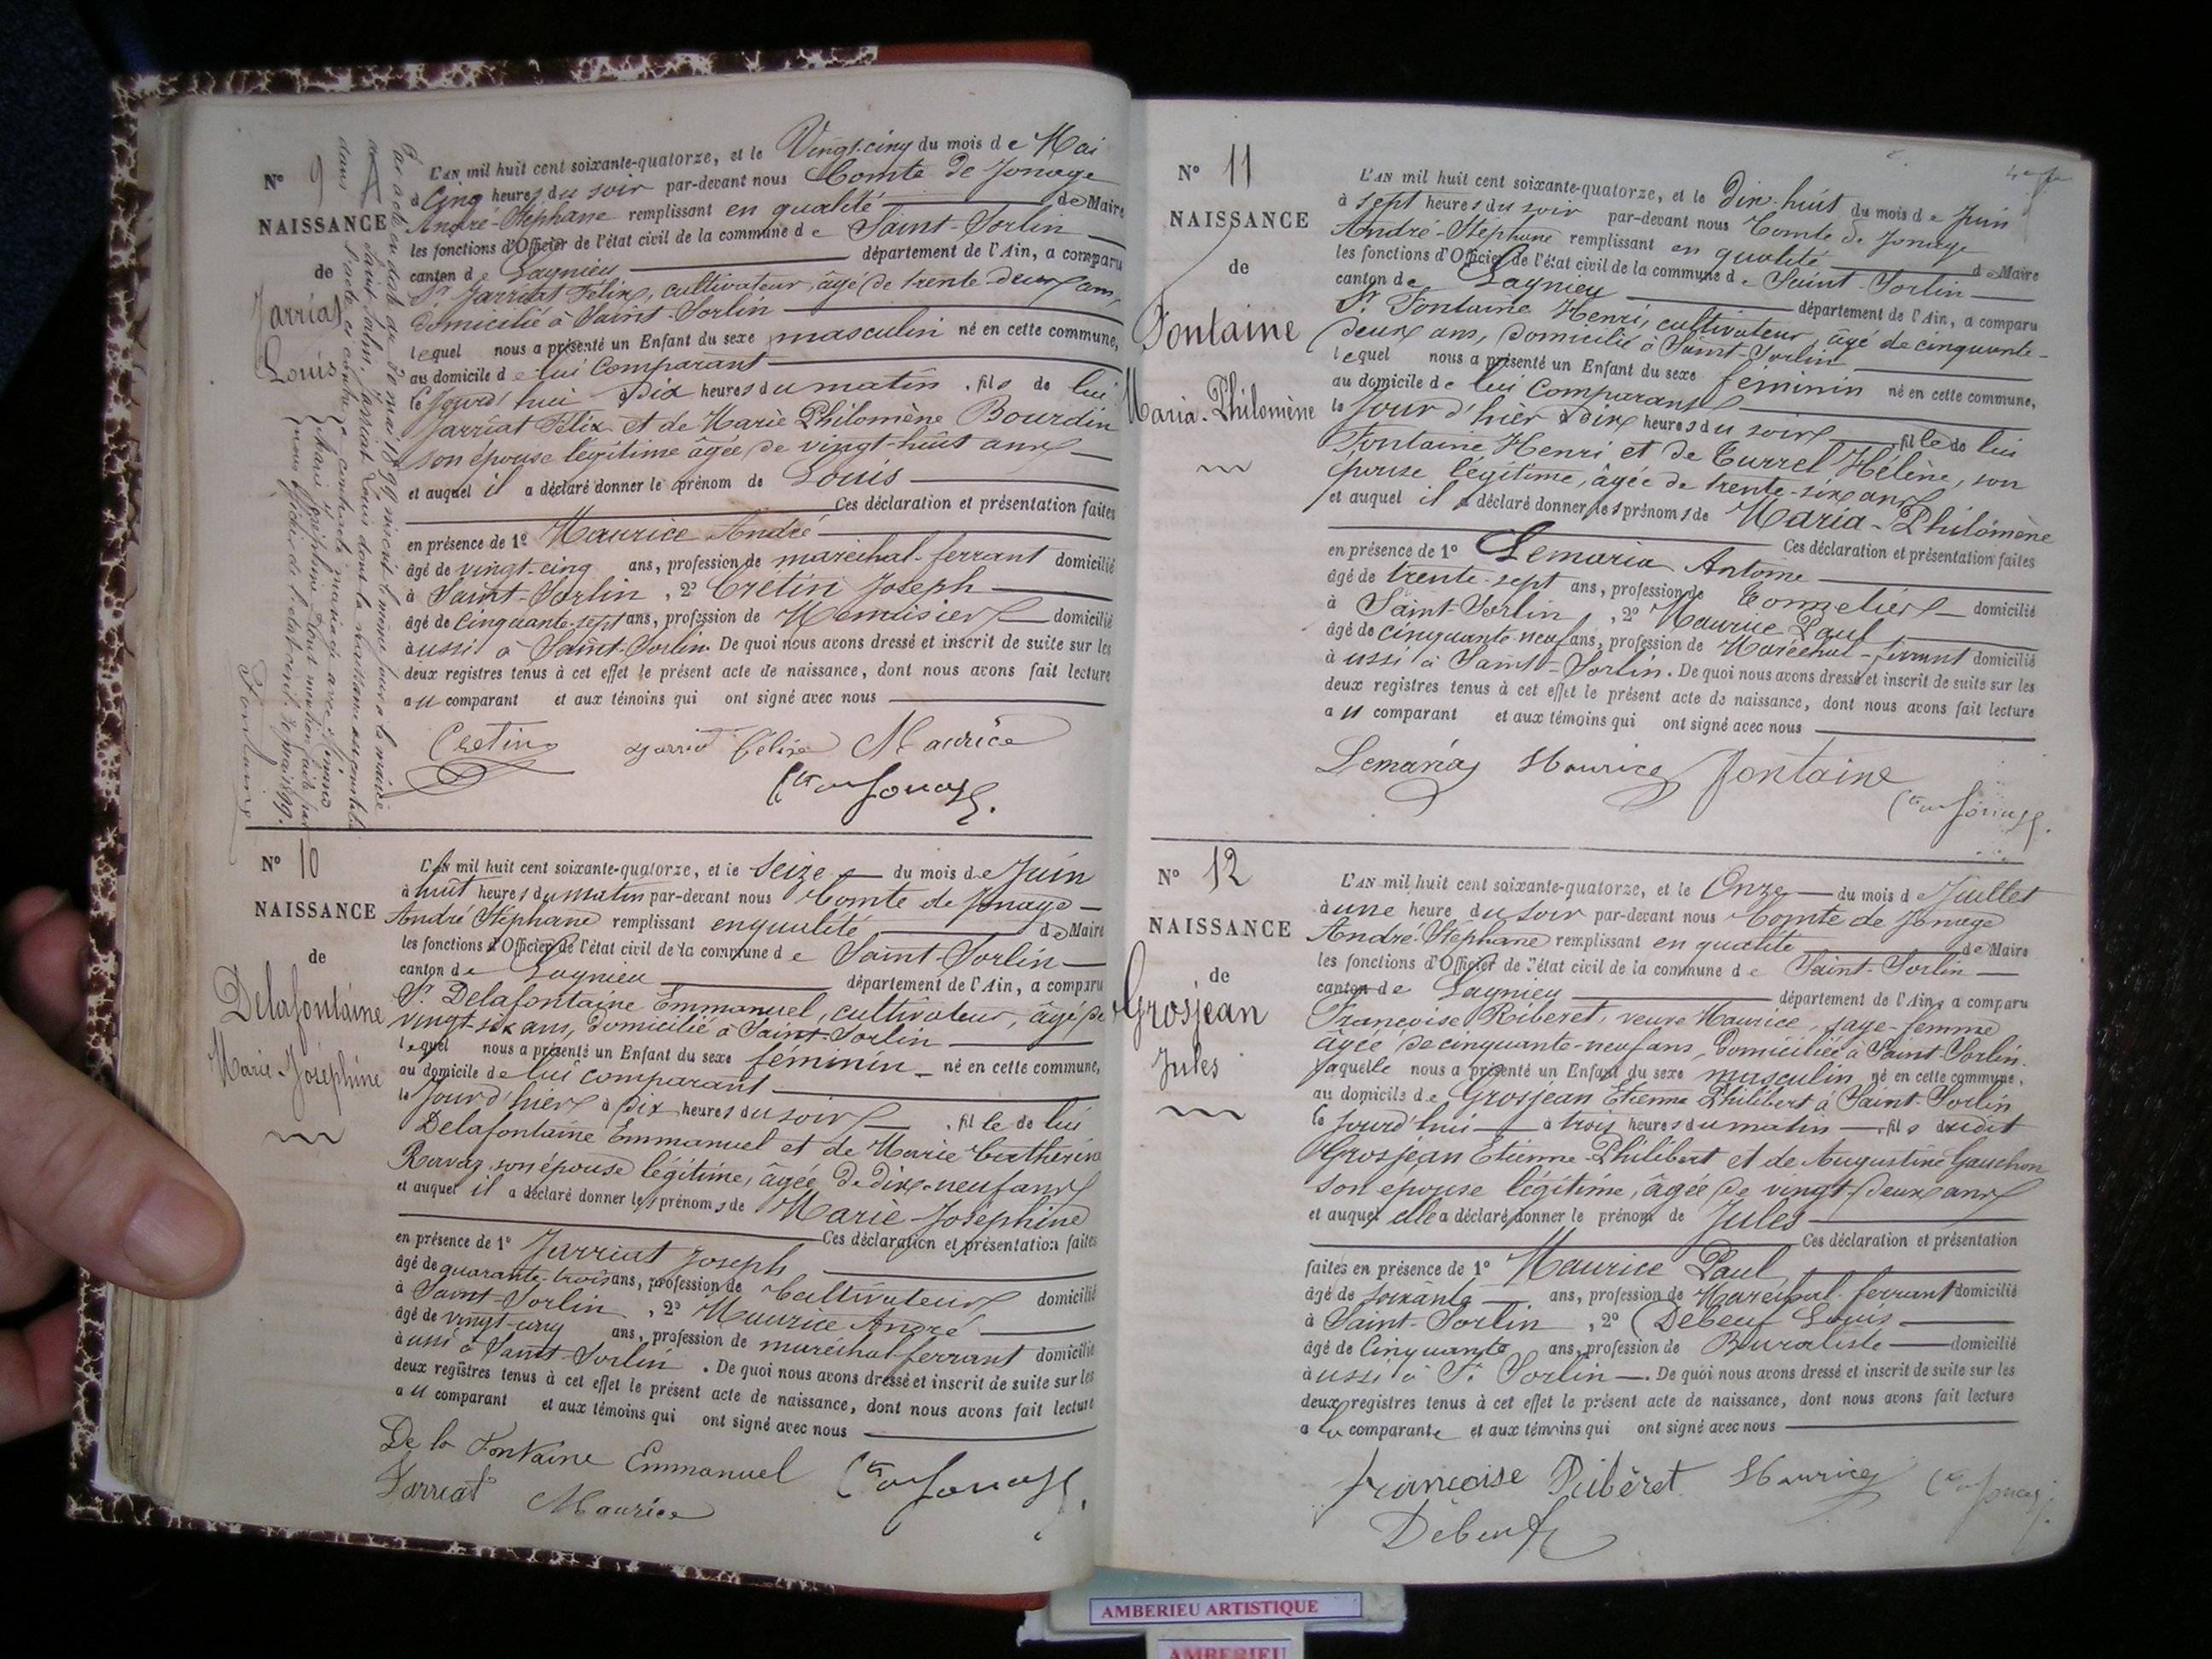 N° 9
NAISSANCE
de
Jarriat
Louis
L'AN mil huit cent soixante-quatorze, et le Vingt-cinq du mois de Mai
à Cinq heures du soir par-devant nous Comte de Jonage
André-Stéphane remplissant en qualité de Maire
les fonctions d'Officier de l'état civil de la commune de Saint-Sorlin
canton de Lagnieu département de l'Ain, a comparu
Sr. Jarriat Félix, cultivateur, âgé de trente-deux ans,
domicilié à Saint-Sorlin
lequel nous a présenté un Enfant du sexe masculin né en cette commune,
au domicile de lui Comparant
le Jourd'hui Dix heures du matin, fils de lui
Jarriat Félix et de Marie Philomène Bourdin
son épouse légitime âgée de vingt-huit ans
et auquel il a déclaré donner le prénom de Louis
Ces déclaration et présentation faites
en présence de 1° Maurice André
âgé de vingt-cinq ans, profession de maréchal-ferrant domicilié
à Saint-Sorlin, 2° Cretin Joseph
âgé de Cinquante-sept ans, profession de Menuisier domicilié
aussi à Saint-Sorlin. De quoi nous avons dressé et inscrit de suite sur les
deux registres tenus à cet effet le présent acte de naissance, dont nous avons fait lecture
au comparant et aux témoins qui ont signé avec nous
Cretin Jarriat Félix Maurice
Cte de Jonage.
Par acte en date du mai 1899 inscrit le même jour à la mairie
de Saint-Sorlin, Jarriat Louis dont la naissance est constatée
dans l'acte ci-contre a contracté mariage avec
Marie Joséphine dont mention faite par
nous Officier de l'état civil. mai 1899.
Fontaine
N° 10
NAISSANCE
de
Delafontaine
Marie-Joséphine
L'AN mil huit cent soixante-quatorze, et le Seize du mois de Juin
à huit heures du matin par-devant nous Comte de Jonage
André Stéphane remplissant en qualité de Maire
les fonctions d'Officier de l'état civil de la commune de Saint-Sorlin
canton de Lagnieu département de l'Ain, a comparu
Sr. Delafontaine Emmanuel, cultivateur, âgé de
vingt-six ans, domicilié à Saint-Sorlin
lequel nous a présenté un Enfant du sexe féminin né en cette commune,
au domicile de lui comparant
le Jour d'hier à Dix heures du soir, fille de lui
Delafontaine Emmanuel et de Marie Catherine
Ravaz son épouse légitime, âgée de dix-neuf ans
et auquel il a déclaré donner les prénoms de Marie-Joséphine
Ces déclaration et présentation faites
en présence de 1° Jarriat Joseph
âgé de quarante-trois ans, profession de Cultivateur domicilié
à Saint-Sorlin, 2° Maurice André
âgé de vingt-cinq ans, profession de maréchal-ferrant domicilié
aussi à Saint-Sorlin. De quoi nous avons dressé et inscrit de suite sur les
deux registres tenus à cet effet le présent acte de naissance, dont nous avons fait lecture
au comparant et aux témoins qui ont signé avec nous
De la Fontaine Emmanuel Cte de Jonage.
Jarriat Maurice
N° 11
NAISSANCE
de
Fontaine
Maria-Philomène
L'AN mil huit cent soixante-quatorze, et le Dix-huit du mois de Juin
à sept heures du soir par-devant nous Comte de Jonage
André-Stéphane remplissant en qualité de Maire
les fonctions d'Officier de l'état civil de la commune de Saint-Sorlin
canton de Lagnieu département de l'Ain, a comparu
Sr. Fontaine Henri, cultivateur, âgé de cinquante-
deux ans, domicilié à Saint-Sorlin
lequel nous a présenté un Enfant du sexe féminin né en cette commune,
au domicile de lui Comparant
le Jour d'hier à Dix heures du soir fille de lui
Fontaine Henri et de Turrel Hélène, son
épouse légitime, âgée de trente-six ans
et auquel il a déclaré donner les prénoms de Maria-Philomène
Ces déclaration et présentation faites
en présence de 1° Lemaria Antome
âgé de trente-sept ans, profession de Tonnelier domicilié
à Saint-Sorlin, 2° Maurice Paul
âgé de cinquante-neuf ans, profession de Maréchal-ferrant domicilié
aussi à Saint-Sorlin. De quoi nous avons dressé et inscrit de suite sur les
deux registres tenus à cet effet le présent acte de naissance, dont nous avons fait lecture
au comparant et aux témoins qui ont signé avec nous
Lemaria Maurice fontaine
Cte de Jonage.
N° 12
NAISSANCE
de
Grosjean
Jules
L'AN mil huit cent soixante-quatorze, et le Onze du mois de Juillet
à une heure du soir par-devant nous Comte de Jonage
André-Stéphane remplissant en qualité de Maire
les fonctions d'Officier de l'état civil de la commune de Saint-Sorlin
canton de Lagnieu département de l'Ain, a comparu
Françoise Riberet, veuve Maurice, sage-femme
âgée de cinquante-neuf ans, Domiciliée à Saint-Sorlin.
laquelle nous a présenté un Enfant du sexe masculin né en cette commune,
au domicile de Grosjean Etienne Philibert à Saint-Sorlin
le Jourd'hui à trois heures du matin, fils dudit
Grosjean Etienne-Philibert et de Augustine Gauchon
son épouse légitime, âgée de vingt-deux ans
et auquel elle a déclaré donner le prénom de Jules
Ces déclaration et présentation
faites en présence de 1° Maurice Paul
âgé de soixante ans, profession de Maréchal-ferrant domicilié
à Saint-Sorlin, 2° Debeuf Louis
âgé de Cinquante ans, profession de Buraliste domicilié
aussi à St. Sorlin. De quoi nous avons dressé et inscrit de suite sur les
deux registres tenus à cet effet le présent acte de naissance, dont nous avons fait lecture
a la comparante et aux témoins qui ont signé avec nous
françoise Ribéret Maurice Cte de Jonage.
Debeuf
AMBERIEU ARTISTIQUE
AMBERIEU